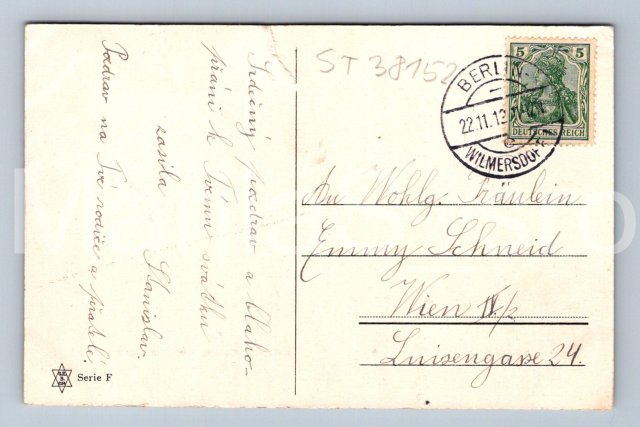 Srdečný pozdrav a blaho-
přání k Tvému svátku
zasílá
Stanislav.
Pozdrav na Tvé rodiče a přátelé.
ST 38152
BERLIN
22.11.13
WILMERSDORF
5 5
DEUTSCHES REICH
An Wohlg. Fräulein
Emmy Schneid
Wien IV/2
Luisengasse 24.
Serie F